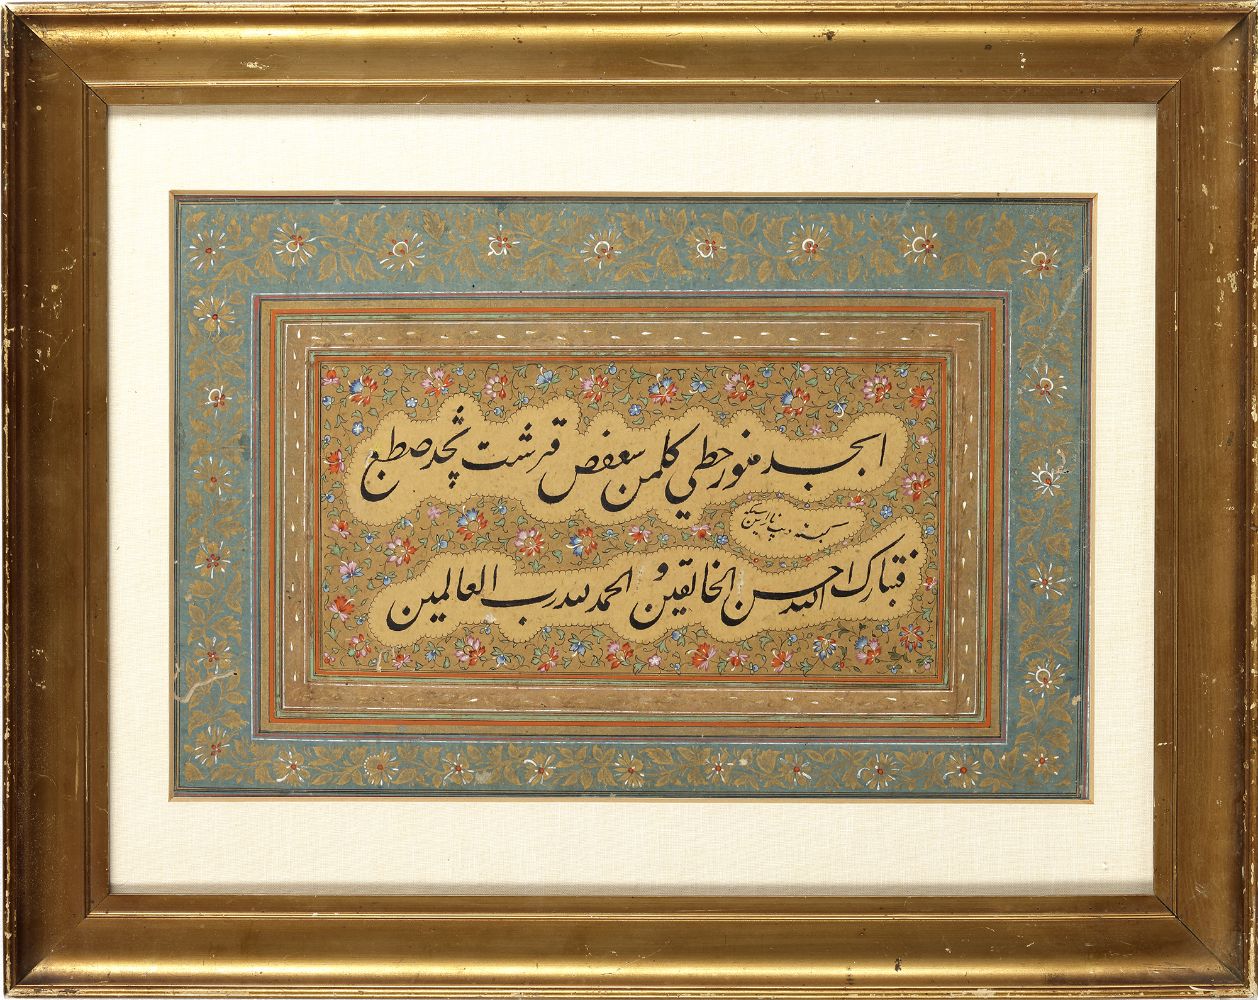 ابجد هنور حطي كلمن سعفص قرشت ثخذ ضطغ
كمينه
فتبارك الله احسن الخالقين و الحمد لله رب العالمين